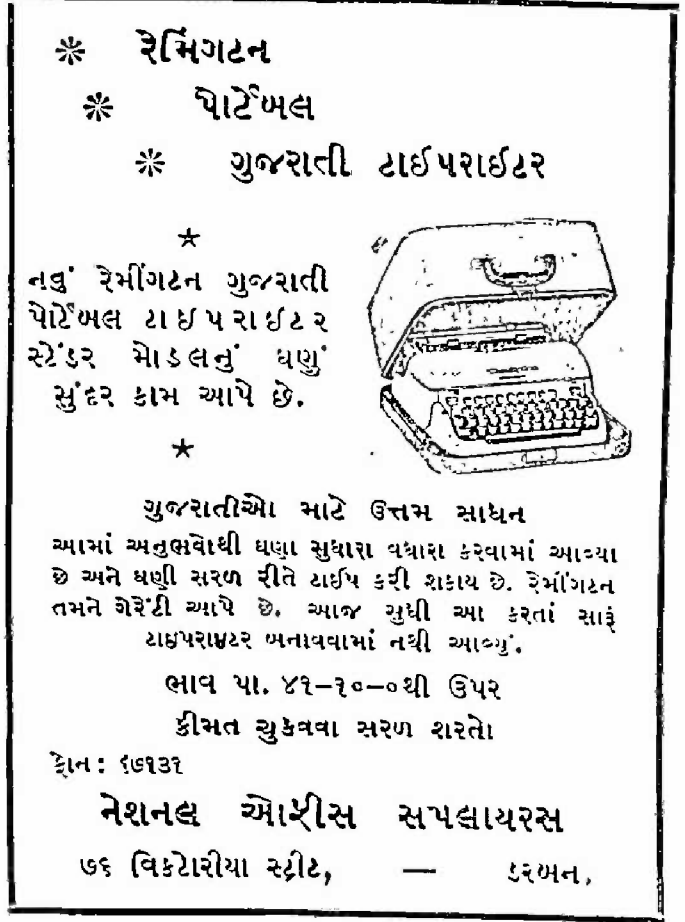 રેમિંગટન
પોર્ટેબલ
ગુજરાતી ટાઈપરાઈટર
નવું રેમીંગટન ગુજરાતી
પોર્ટેબલ ટાઇપરાઇટર
સ્ટેંડર મોડલનું ઘણું
સુંદર કામ આપે છે.
ગુજરાતીઓ માટે ઉત્તમ સાધન
આમાં અનુભવોથી ઘણા સુધારા વધારા કરવામાં આવ્યા
છે અને ઘણી સરળ રીતે ટાઈપ કરી શકાય છે. રેમીંગટન
તમને ગેરેંટી આપે છે. આજ સુધી આ કરતાં સારૂં
ટાઇપરાઇટર બનાવવામાં નથી આવ્યું.
ભાવ પા. ૪૧–૧૦–૦થી ઉપર
કીંમત ચુકવવા સરળ શરતો
ફોન: ૬૭૧૩૧
નેશનલ ઓફીસ સપલાયરસ
૭૬ વિક્ટોરીયા સ્ટ્રીટ, — ડરબન.